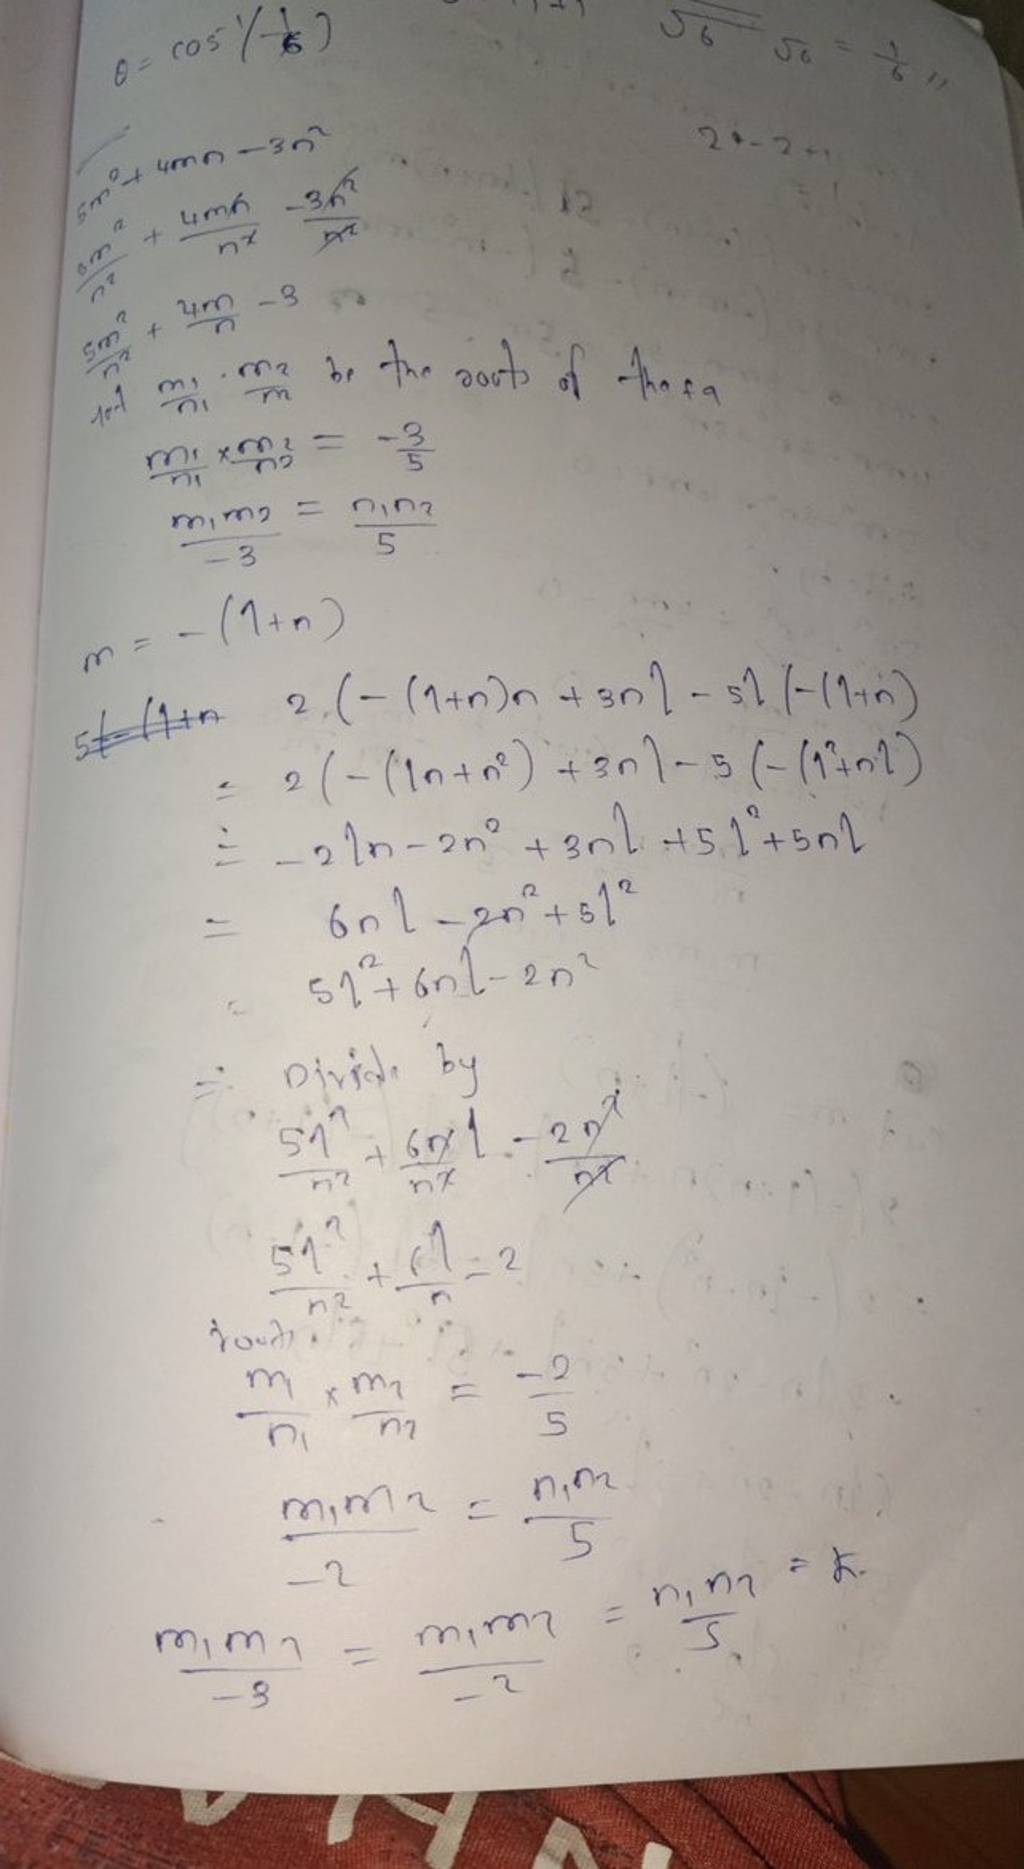 θ = cos⁻¹(-1/6)
√6 √6 = 1/6 //
2 + - 2 +
5m² + 4mn - 3n²
5m²/n² + 4mn/n² - 3n²/n²
5m²/n² + 4m/n - 3
let m₁/n₁ · m₂/n be the roots of the eq
m₁/n₁ × m₂/n₂ = -3/5
m₁m₂/-3 = n₁n₂/5
m = -(l+n)
5(-(l+n 2(-(l+n)n + 3nl - 5l(-(l+n)
= 2(-(ln+n²) + 3nl - 5(-(l²+nl)
= -2ln - 2n² + 3nl + 5l² + 5nl
= 6nl - 2n² + 5l²
= 5l² + 6nl - 2n²
= Divide by
5l²/n² + 6nl/n² - 2n²/n²
5l²/n² + 6l/n - 2
roots
m₁/n₁ × m₂/n₂ = -2/5
m₁m₂/-2 = n₁n₂/5
m₁m₂/-3 = m₁m₂/-2 = n₁n₂/5 = k.